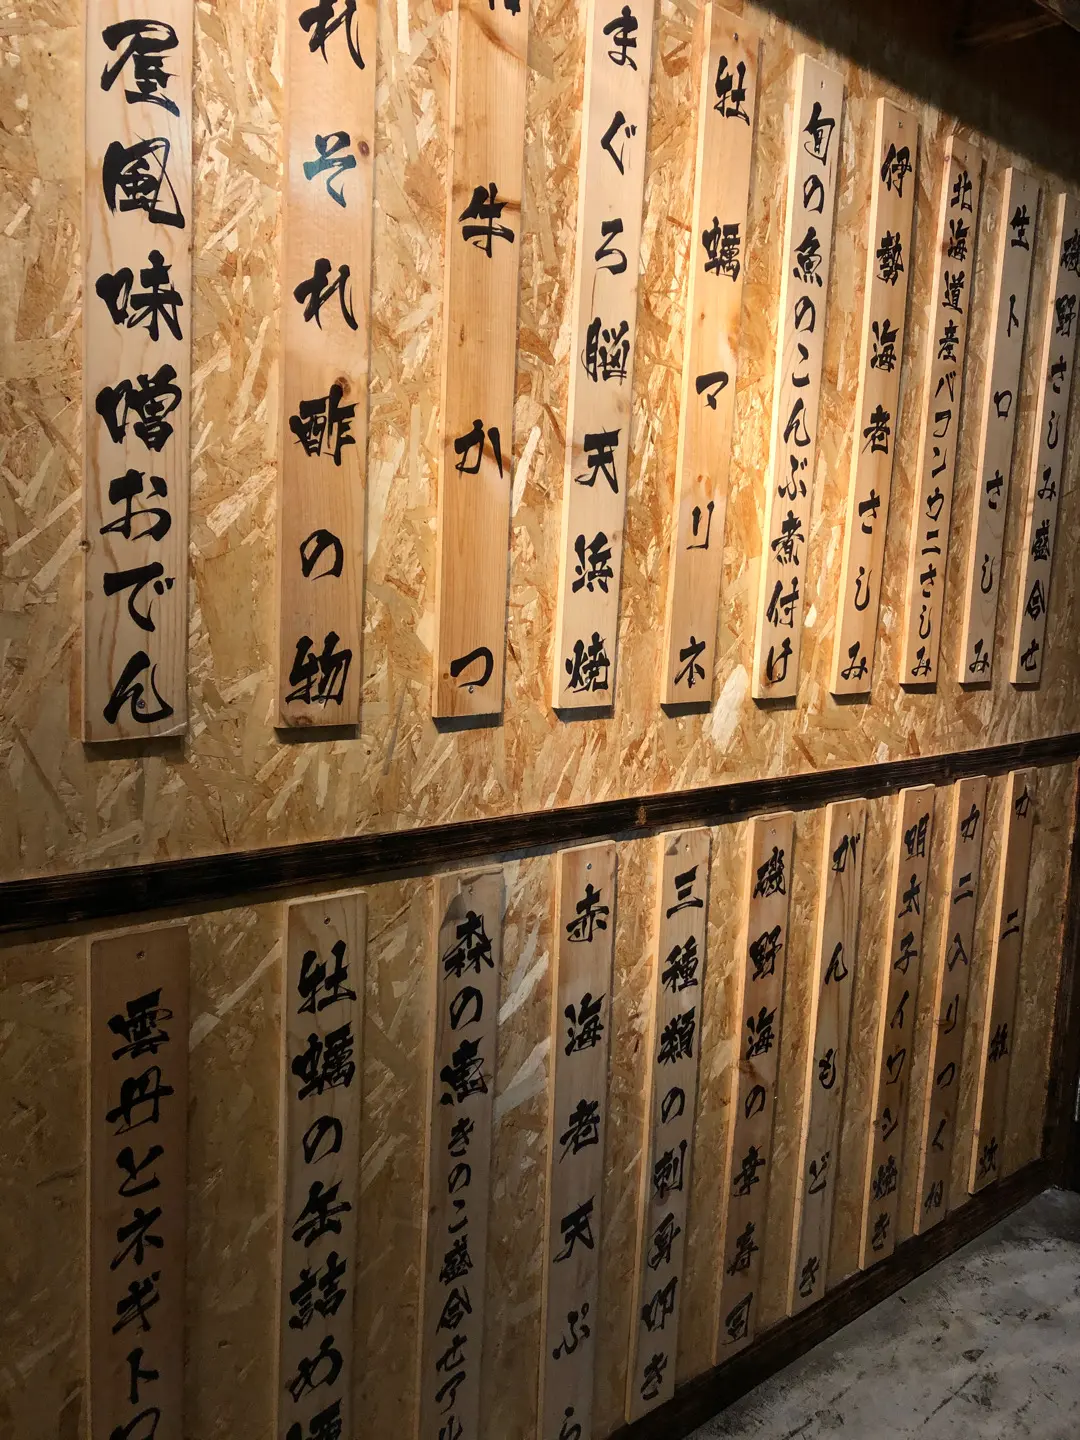 磯野さしみ盛合せ
生トロさしみ
北海道産バフンウニさしみ
伊勢海老さしみ
旬の魚のこんぶ煮付け
牡蠣マリネ
まぐろ脳天浜焼
牛かつ
れそれ酢の物
屋風味噌おでん
カニ雑炊
カニ入りつくね
明太子イワシ焼き
がんもどき
磯野海の幸寿司
三種類の刺身叩き
赤海老天ぷら
森の恵きのこ盛合せアル
牡蠣の缶詰め
雲丹とネギトロ